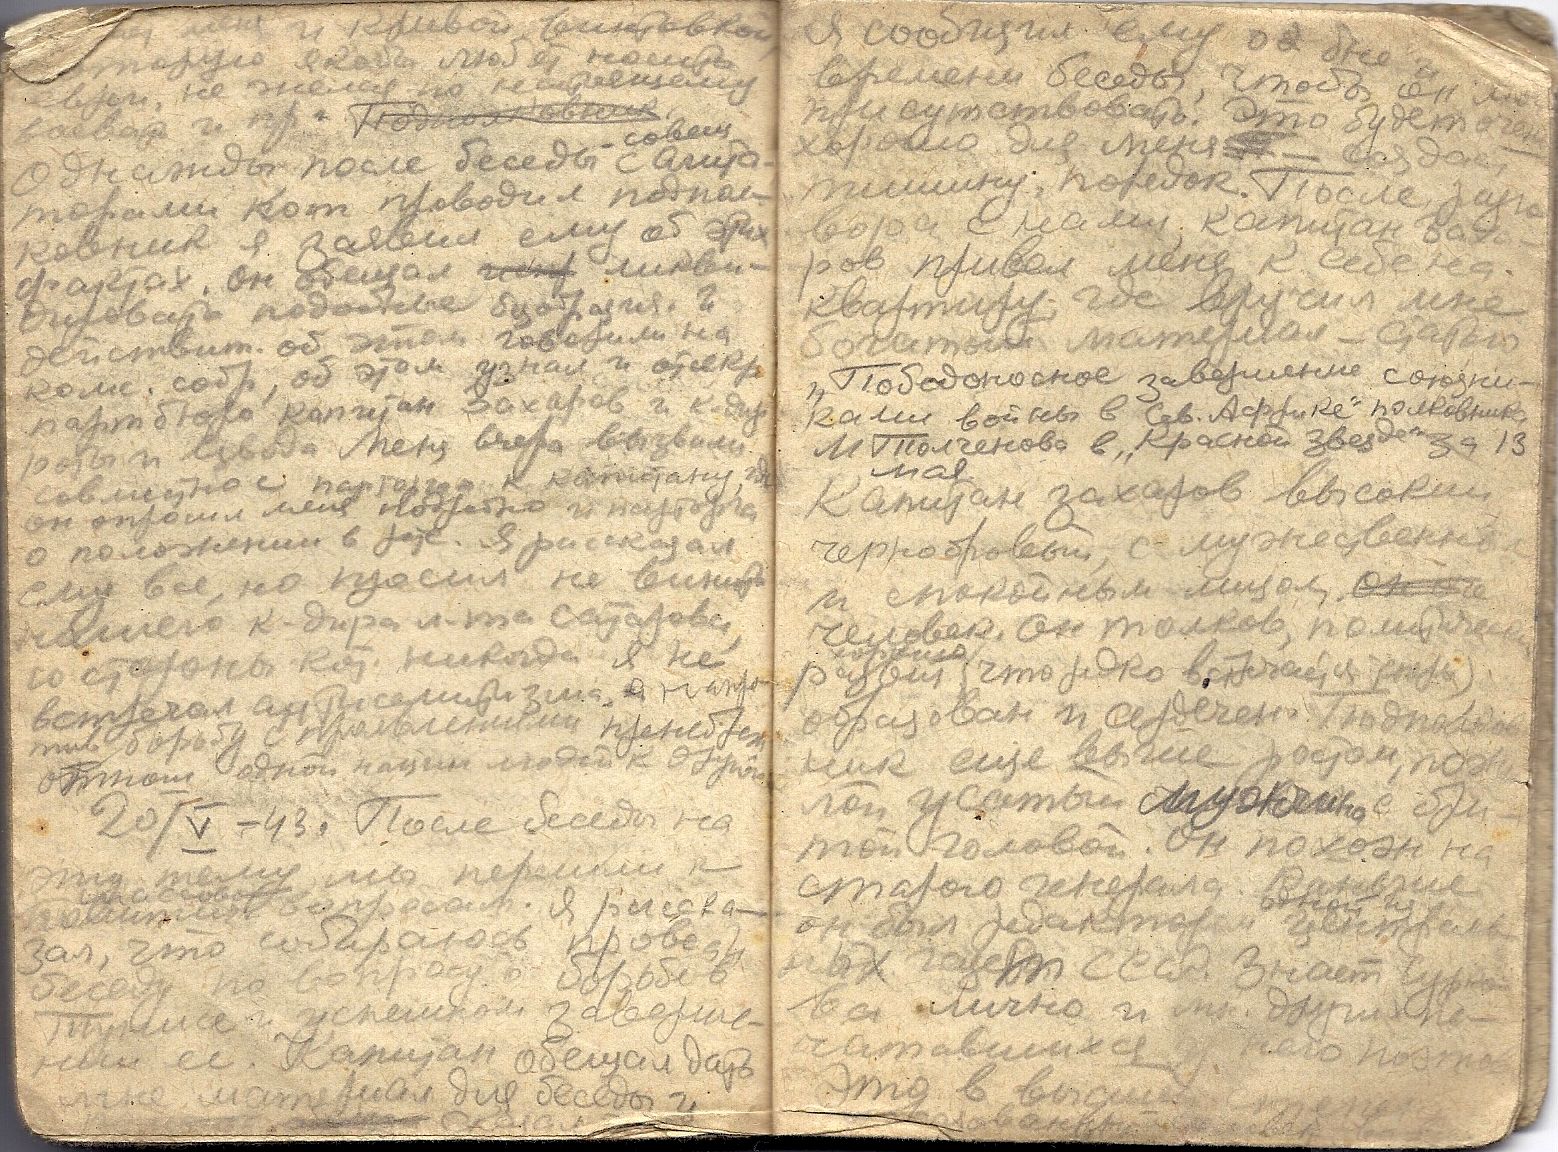 и кривой винтовкой
которую якобы любят носить
евреи, не желая по настоящему
воевать и пр. Подполковник
Однажды после беседы с агита-
совещ
торами кот проводил подпол-
ковник я заявил ему об этих
фактах. он обещал ликви-
дировать подобные безобразия. И
действит. об этом говорили на
комс. собр, об этом узнал и отсекр
партбюро капитан Захаров и к-дир
роты и взвода Меня вчера вызвали
совместно с парторгом к капитану, где
он опросил меня и парторга
о положении в роте. Я рассказал
ему все, но просил не винить
нашего к-дира л-та Сатарова,
со стороны кот. никогда я не
встречал антисемитизма, а напро-
тив борьбу с проявлениями пренебреж
отнош одной нации людей к другой
20/V-43. После беседы на
эту тему мы перешли к
вопросам. Я расска-
зал, что собираюсь провести
беседу по вопросу о борьбе в
Тунисе и успешном заверше-
нии ее. Капитан обещал дать
мне материал для беседы и
сказал
Я сообщил ему об дне и
времени беседы, чтобы он мог
присутствовать. Это будет очень
хорошо для меня — создаст
тишину, порядок. После разго-
вора с нами, капитан Заха-
ров привел меня к себе на
квартиру, где вручил мне
богатый материал – статью
„Победоносное завершение союзни-
ками войны в Сев. Африке" полковника
М Толченова в „Красной Звезде" за 13
мая
Капитан Захаров высокий
чернобровый, с мужественным
и спокойным лицом
человек. Он толков, политически
хорошо
развит (что редко встречается )
образован и сердечен. Подполков
ник еще выше ростом, пожи
лой усатый мужчина с бри-
той головой. Он похож на
старого генерала. Раньше
одной из
он был редактором централь-
ных газет СССР. Знает
ва лично и мн. других пе-
чатавшихся у него поэтов
Это в высшей